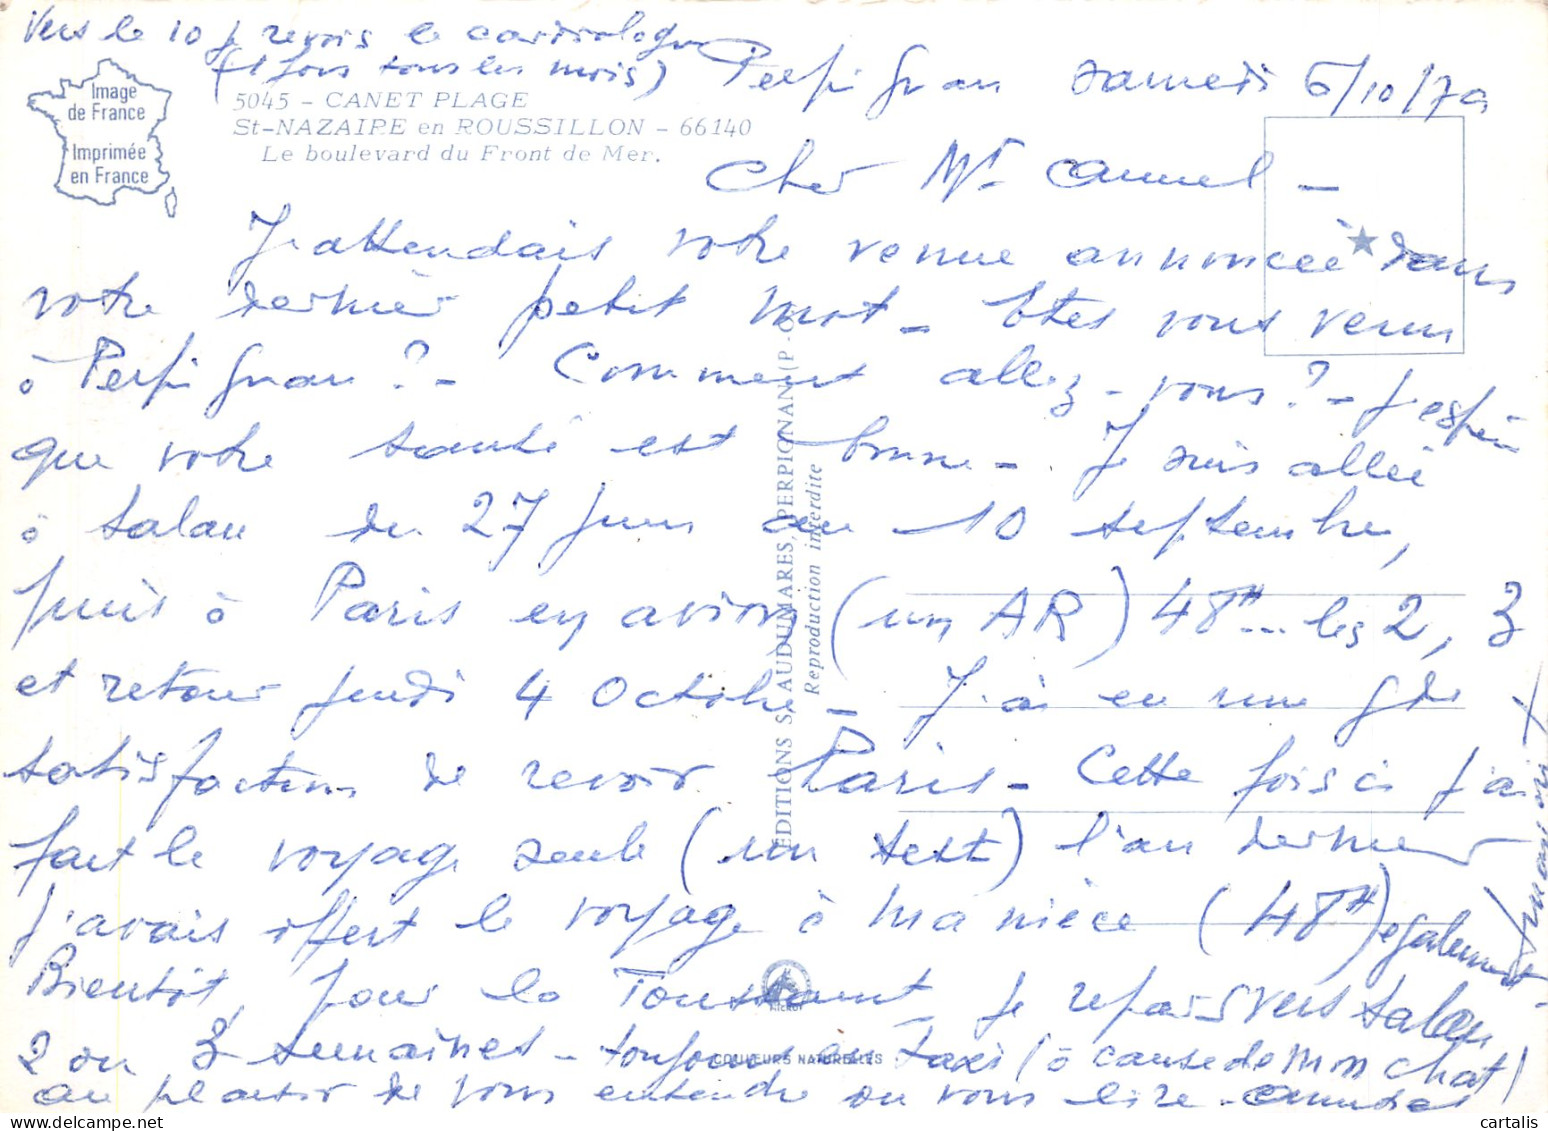 Vers le 10 je revois le cardiologue
(1 fois tous les mois)
Image
de France
Imprimée
en France
5045 - CANET PLAGE
St-NAZAIRE en ROUSSILLON - 66140
Le boulevard du Front de Mer.
Perpignan samedi 6/10/79
Cher Mr
J'attendais votre venue annoncée dans
votre dernier petit mot - Etes vous venu
à Perpignan ? - Comment allez-vous ? - J'espère
que votre santé est bonne - Je suis allée
à Salau du 27 juin au 10 septembre,
puis à Paris en avion (un AR) 48H... les 2, 3
et retour jeudi 4 Octobre - J'ai eu une gde
satisfaction de revoir Paris - Cette fois ci j'ai
fait le voyage seule (un test) l'an dernier
j'avais offert le voyage à ma nièce (48H) également -
Bientôt, pour la Toussaint, je repars vers Salau
2 ou 3 semaines - toujours en taxi (à cause de mon chat)
au plaisir de vous entendre ou vous lire - amitiés
EDITIONS S. AUDUMARES, PERPIGNAN (P.-O.)
Reproduction interdite
COULEURS NATURELLES
cartalis
https://www.delcampe.net